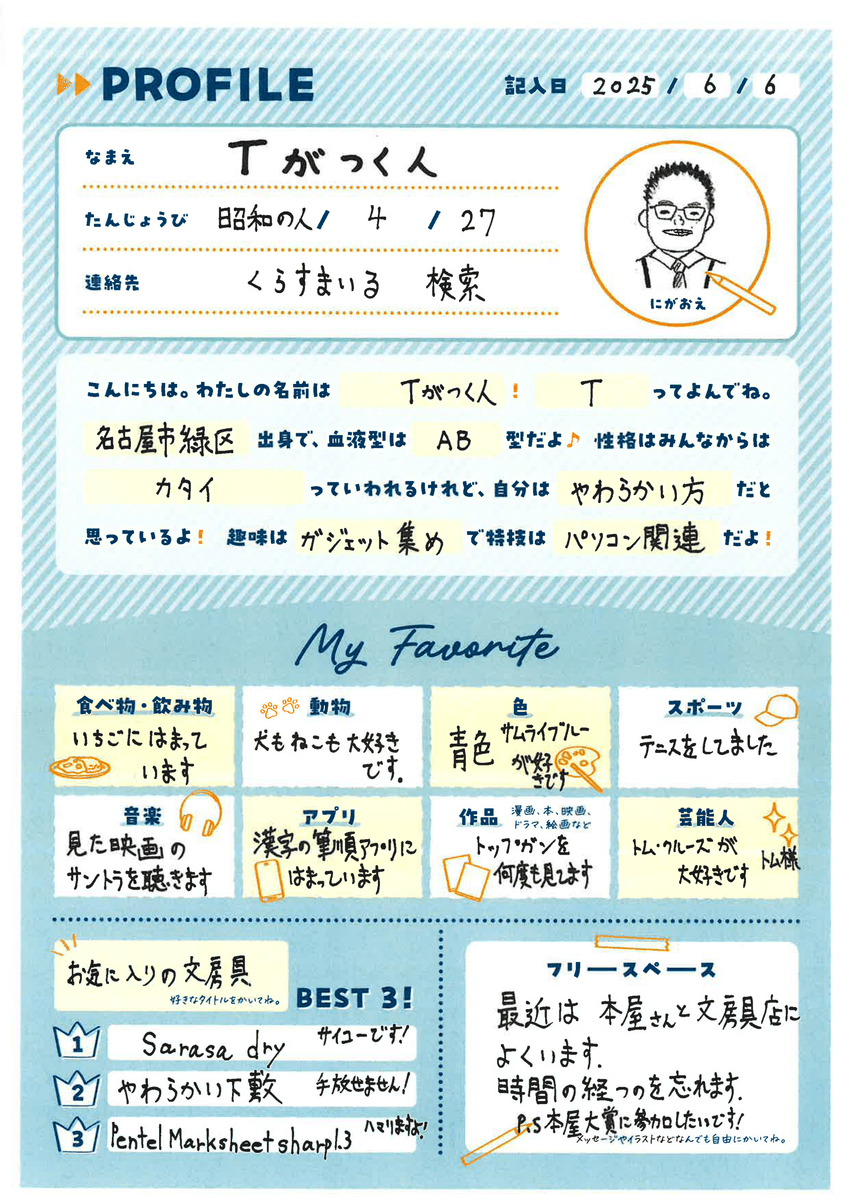 PROFILE
記入日 2025 / 6 / 6
なまえ Tがつく人
たんじょうび 昭和の人 / 4 / 27
連絡先 くらすまいる 検索
にがおえ
こんにちは。わたしの名前は Tがつく人 ! T ってよんでね。
名古屋市緑区 出身で、血液型は AB 型だよ♪ 性格はみんなからは
カタイ っていわれるけれど、自分は やわらかい方 だと
思っているよ! 趣味は ガジェット集め で特技は パソコン関連 だよ!
My Favorite
食べ物・飲み物
いちごにはまって
います
動物
犬もねこも大好き
です.
色
青色 サムライブルー
が好
きです
スポーツ
テニスをしてました
音楽
見た映画の
サントラを聴きます
アプリ
漢字の筆順アプリに
はまっています
作品 漫画、本、映画、
ドラマ、絵画など
トップガンを
何度も見てます
芸能人
トム・クルーズが
大好きです
トム様
お気に入りの文房具
好きなタイトルをかいてね。
BEST 3!
1 Sarasa dry サイコーです!
2 やわらかい下敷 手放せません!
3 Pentel Marksheet sharp1.3 ハマりますよ!
フリースペース
最近は 本屋さんと文房具店に
よくいます.
時間の経つのを忘れます.
P.S 本屋大賞に参加したいです!
メッセージやイラストなどなんでも自由にかいてね。